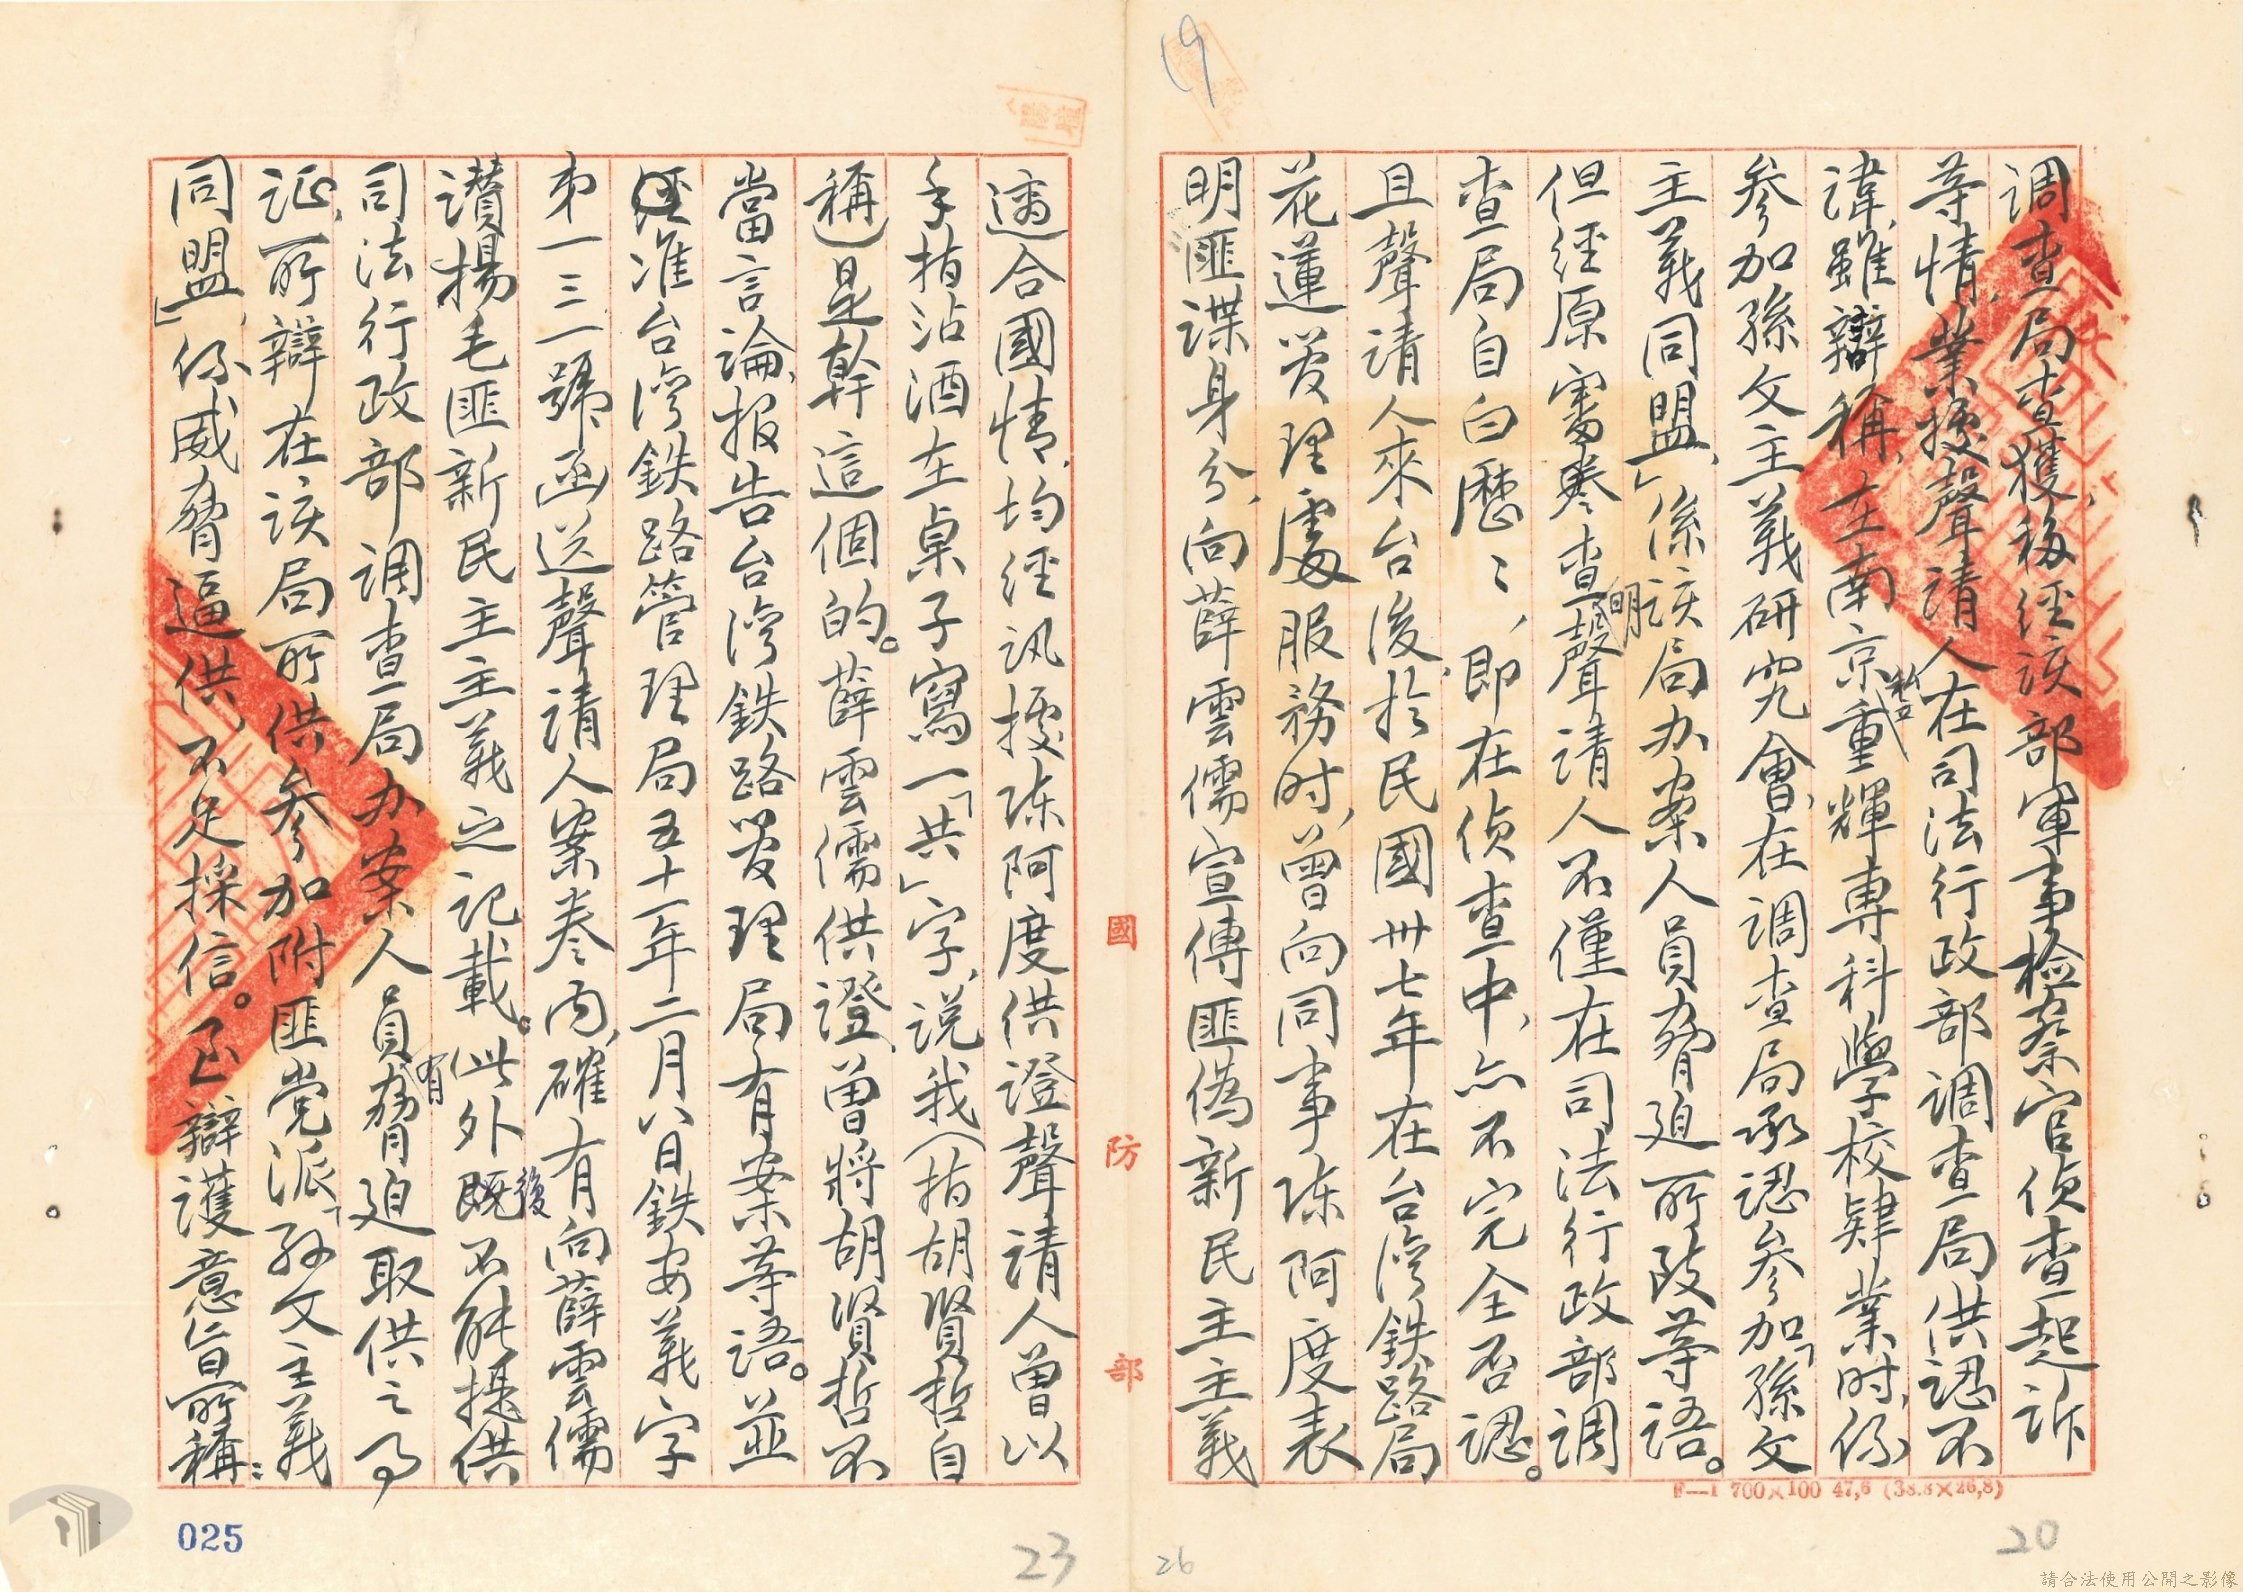 19
调查局查獲，移经该部軍事检察官侦查起訴
等情，業據聲請人在司法行政部調查局供認不
諱，雖辯稱，在南京私立重輝專科學校肄業時，係
參加孫文主義研究會，在調查局承認參加「孫文
主義同盟」，係该局办案人員脅迫所致等語。
但经原審卷查明聲請人不僅在司法行政部調
查局自白歷歷，即在侦查中，亦不完全否認。
且聲請人來台後，於民國卅七年在台湾鉄路局
花蓮管理處服務时，曾向同事陈阿度表
明匪諜身分，向薛雲儒宣傳匪偽新民主主義
適合國情，均经讯據陈阿度供證聲請人曾以
手指沾酒在桌子寫一「共」字，说我（指胡賢哲自
稱）是幹這個的。薛雲儒供證，曾將胡賢哲不
當言論，报告台湾鉄路管理局有案等語。並
准台湾鉄路管理局五十一年二月八日鉄安義字
第一三一號函送聲請人案卷内，確有向薛雲儒
讃揚毛匪新民主主義之記載。此外既不能提供
司法行政部調查局办案人員有脅迫取供之
证，所辯在该局所供參加附匪党派「孙文主義
同盟」，係威脅逼供，不足採信。至辯護意旨所稱：
國防部
F—1 700×100 47,6 (38.8×26,8)
025
23
26
20
請合法使用公開之影像